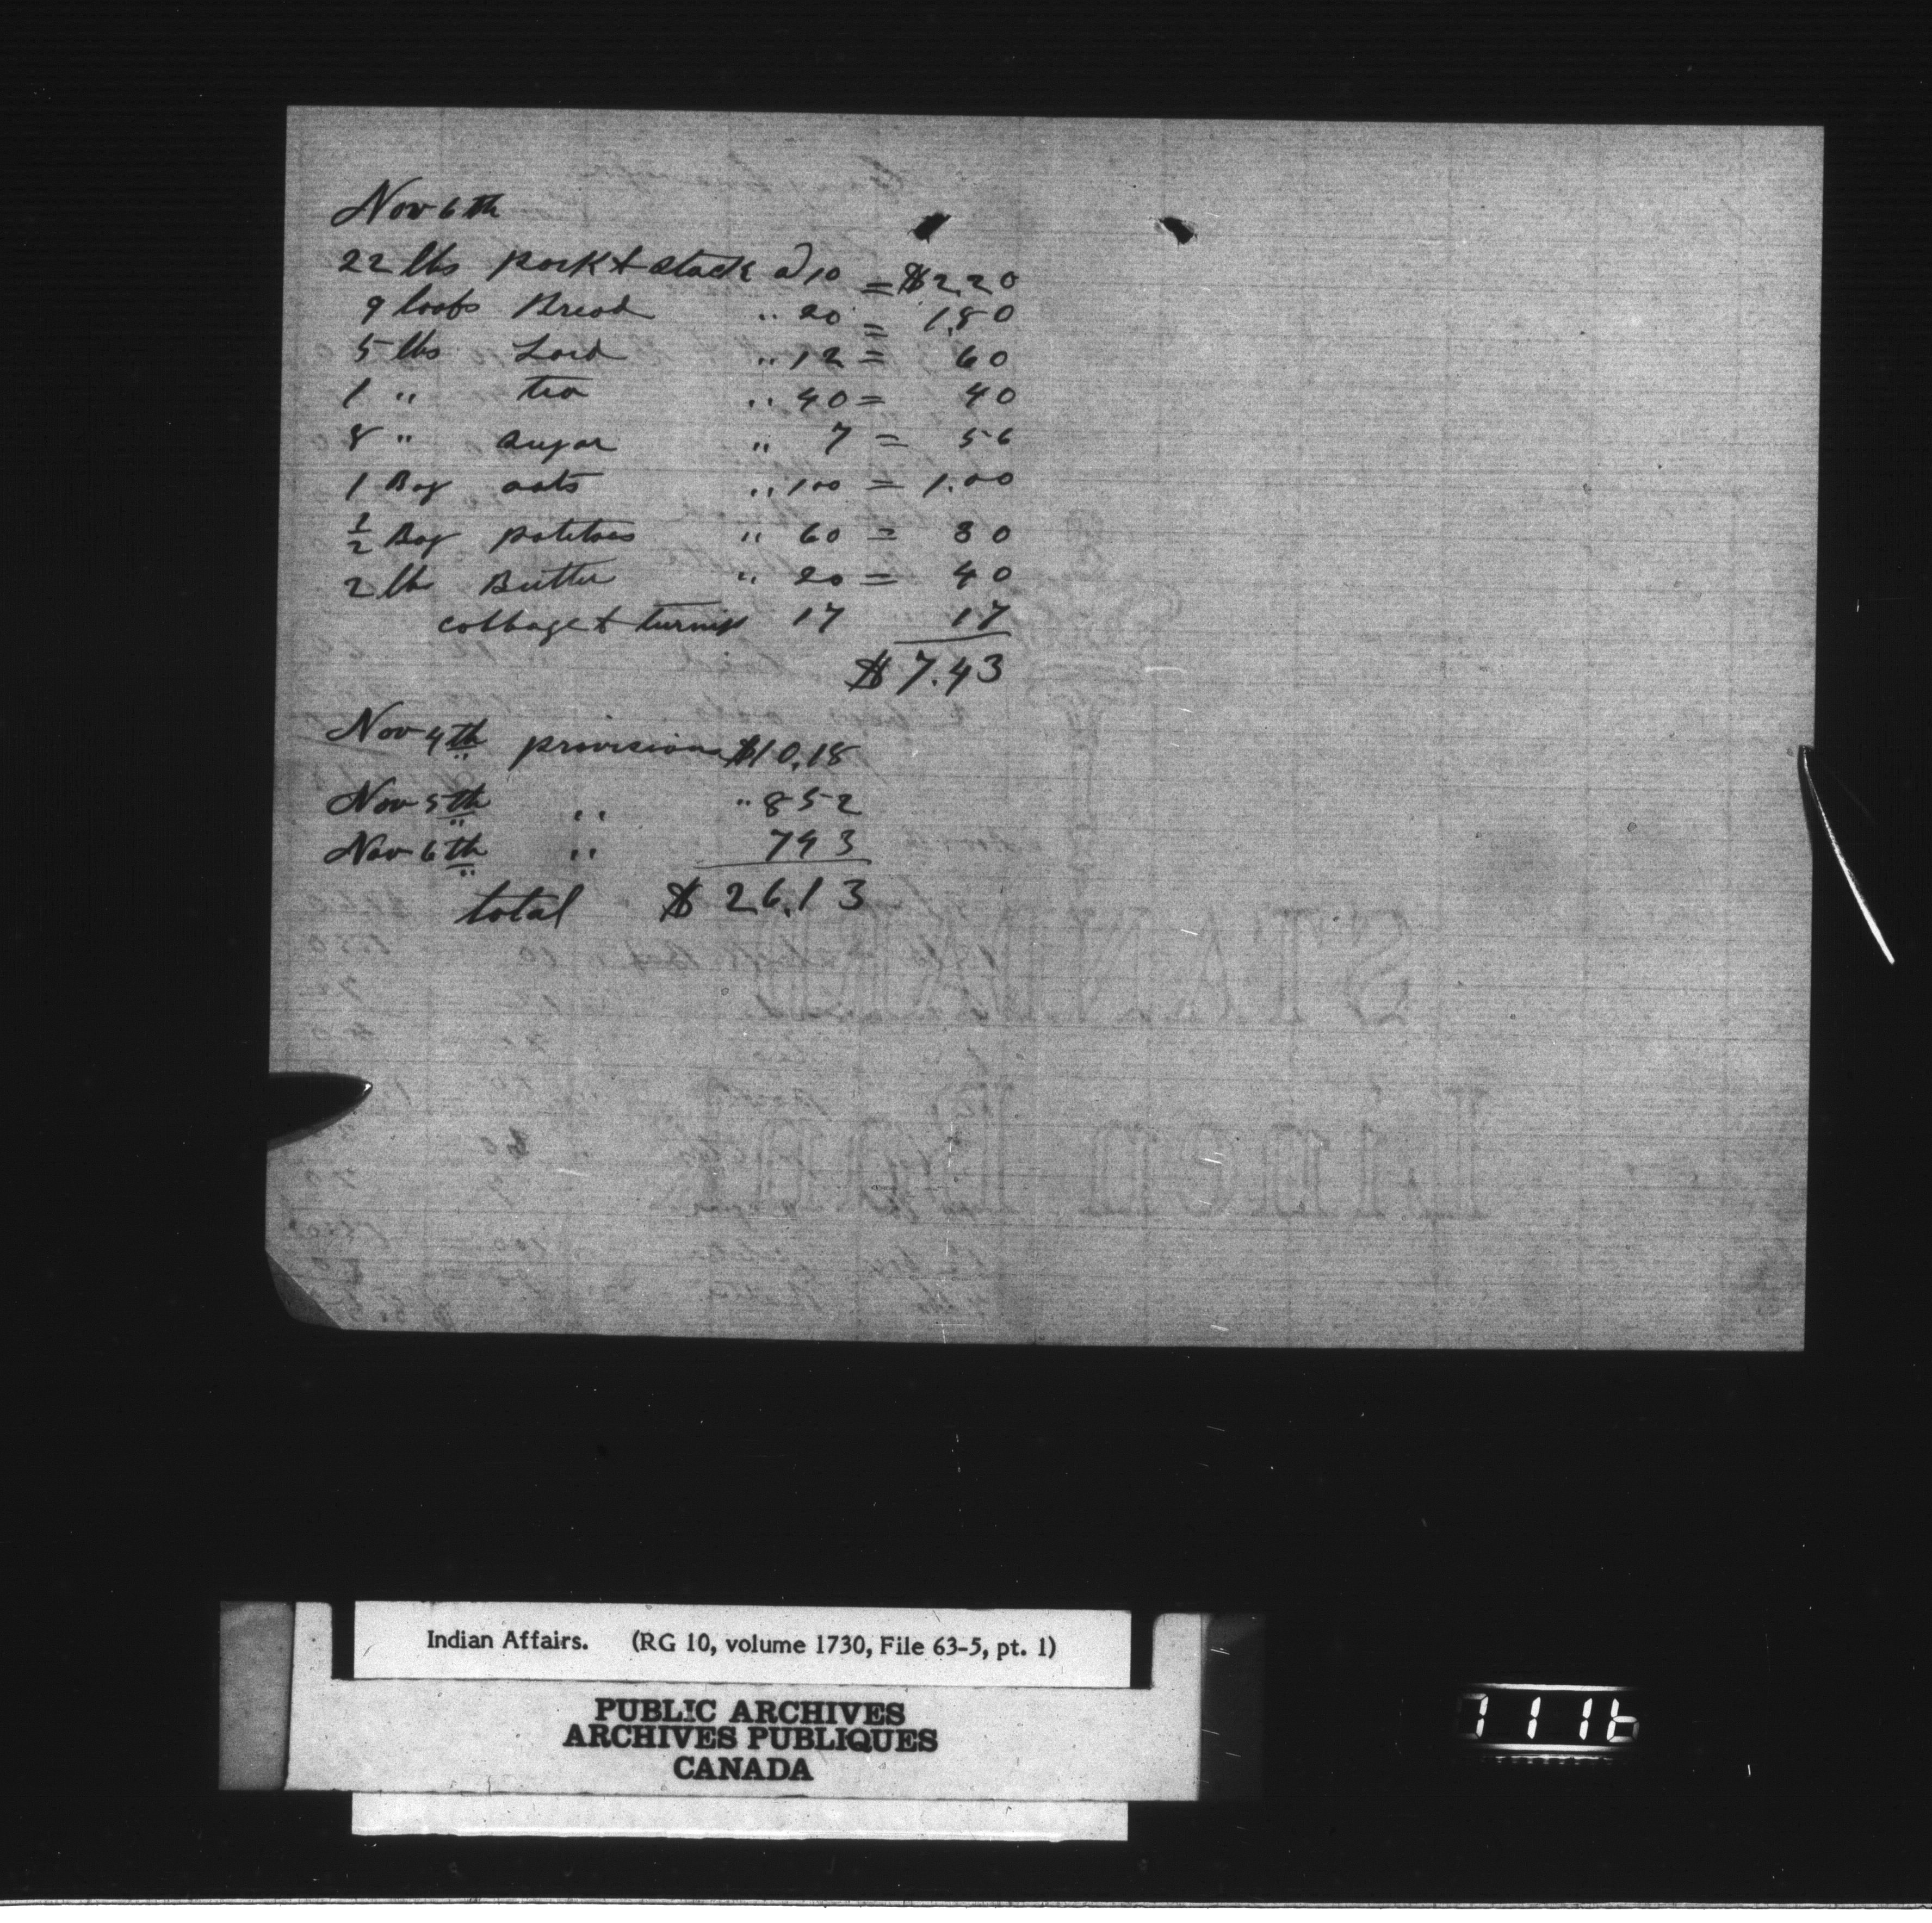 Nov 6th
22 lbs pork & stack @ 10 = $2.20
9 loofs Bread " 20 = 1.80
5 lbs Lard " 12 = 60
1 " tea " 40 = 40
8 " sugar " 7 = 56
1 Bag oats " 100 = 1.00
1/2 Bag potatoes " 60 = 30
2 lb Butter " 20 = 40
cabbage & turnips 17 17
$7.43
Nov 4th provisions $10.18
Nov 5th " " 852
Nov 6th " 743
total $26.13
STANDARD
Linen Bond
Indian Affairs. (RG 10, volume 1730, File 63-5, pt. 1)
PUBLIC ARCHIVES
ARCHIVES PUBLIQUES
CANADA